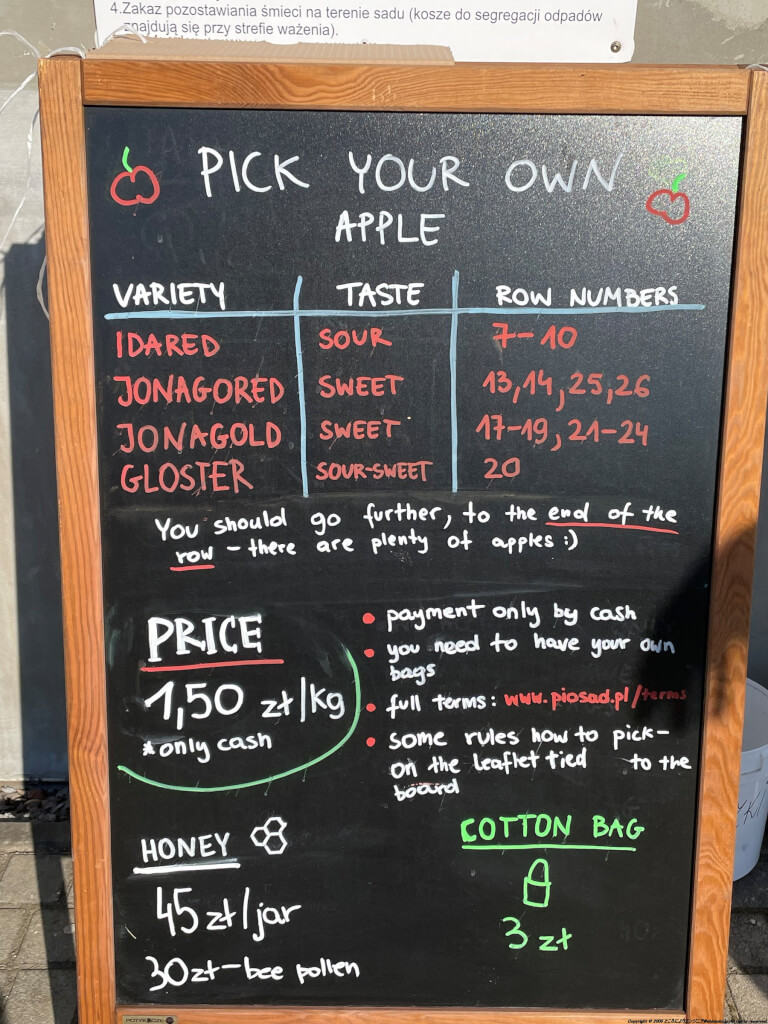 4.Zakaz pozostawiania śmieci na terenie sadu (kosze do segregacji odpadów
znajdują się przy strefie ważenia).
PICK YOUR OWN
APPLE
VARIETY TASTE ROW NUMBERS
IDARED SOUR 7-10
JONAGORED SWEET 13,14,25,26
JONAGOLD SWEET 17-19,21-24
GLOSTER SOUR-SWEET 20
You should go further, to the end of the
row - there are plenty of apples :)
PRICE
1,50 zł/kg
*only cash
• payment only by cash
• you need to have your own
bags
• full terms: www.piosad.pl/terms
• some rules how to pick-
on the leaflet tied to the
board
HONEY
45 zł/jar
30zł-bee pollen
COTTON BAG
3 zł